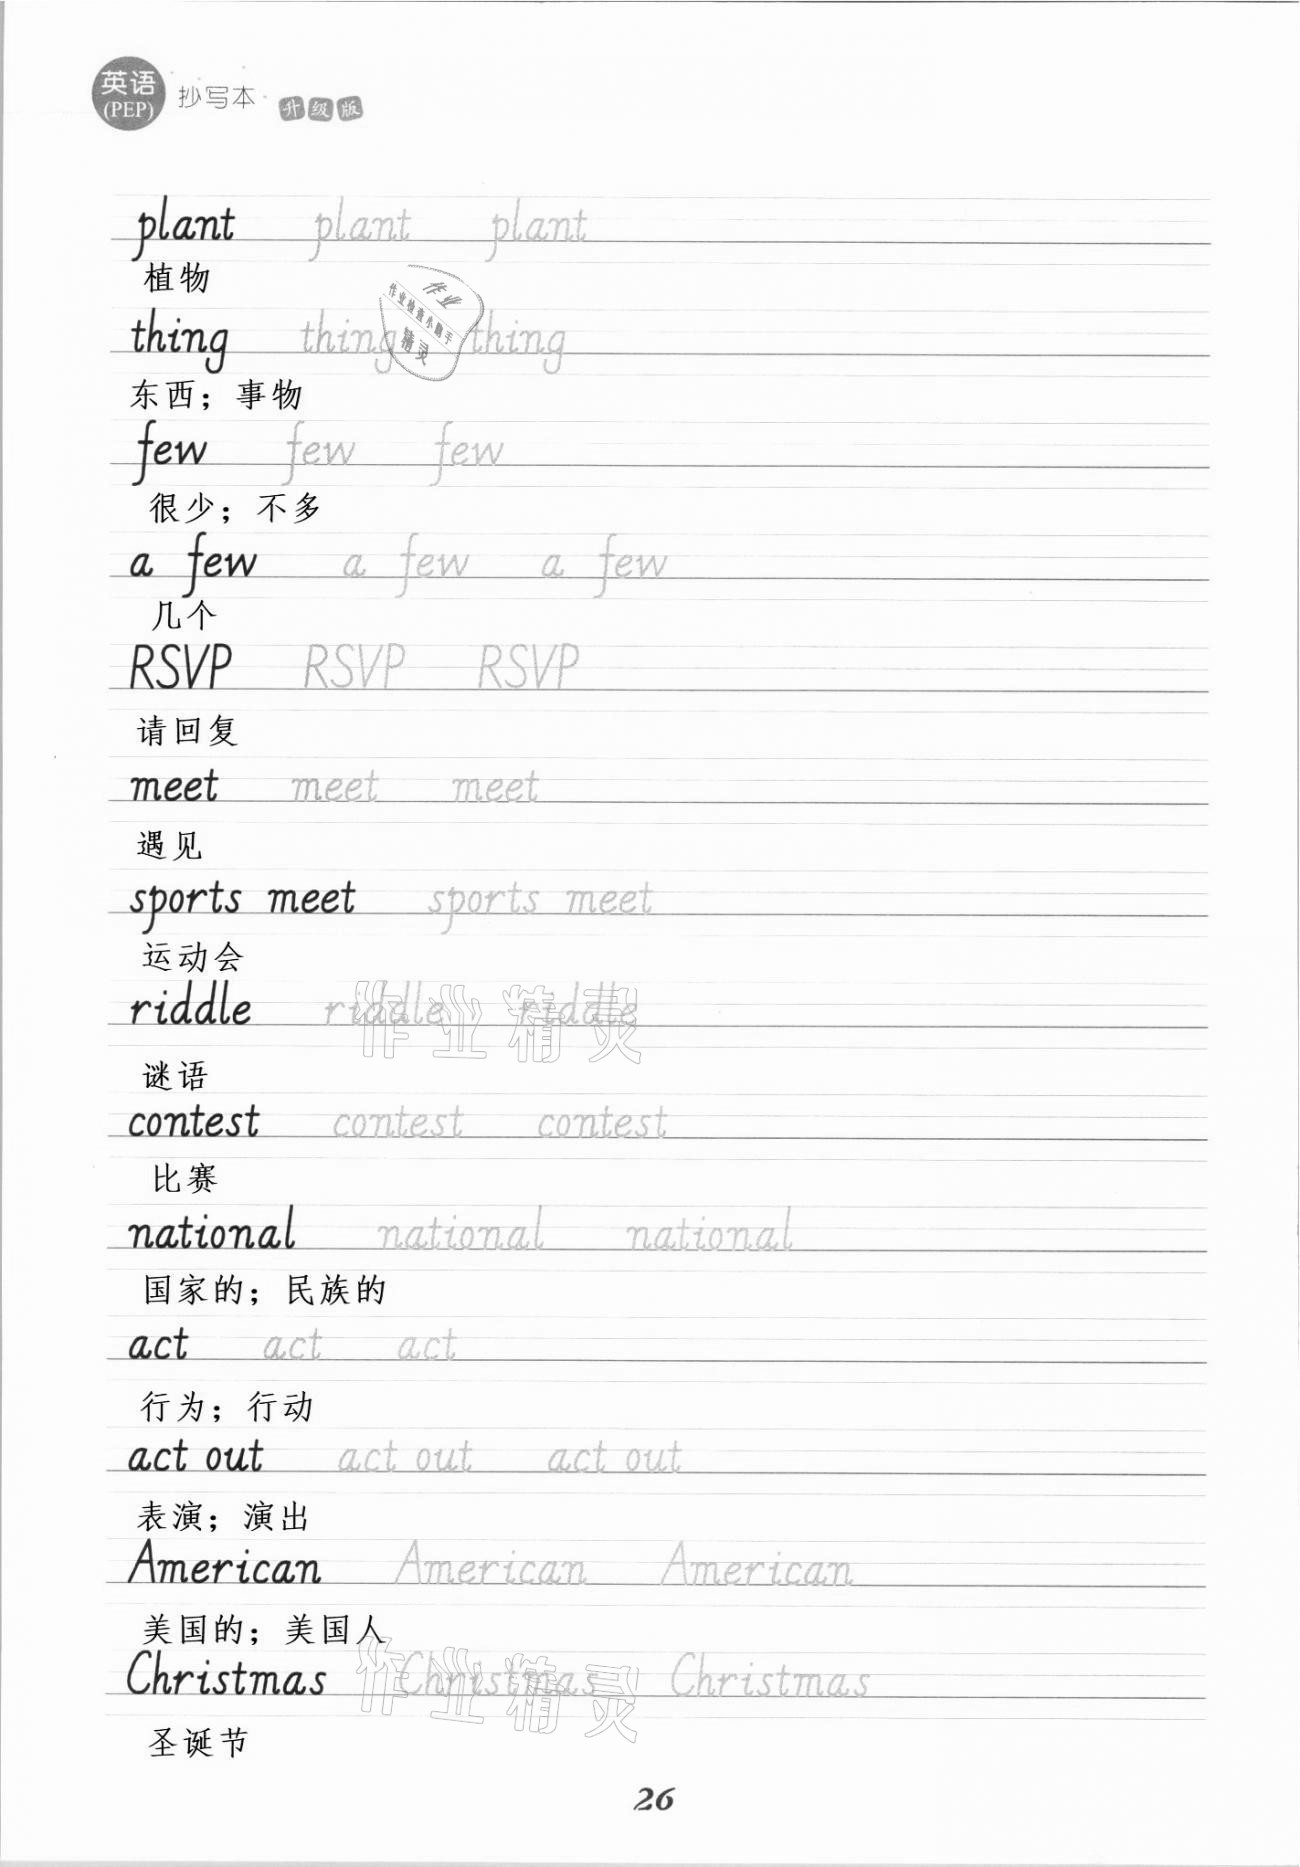 英语
(PEP)
抄写本
升级版
plant plant plant
植物
thing thing thing
东西；事物
few few few
很少；不多
a few a few a few
几个
RSVP RSVP RSVP
请回复
meet meet meet
遇见
sports meet sports meet
运动会
riddle riddle riddle
谜语
contest contest contest
比赛
national national national
国家的；民族的
act act act
行为；行动
act out act out act out
表演；演出
American American American
美国的；美国人
Christmas Christmas Christmas
圣诞节
26
作业
作业检查小助手
精灵
作业精灵
作业精灵